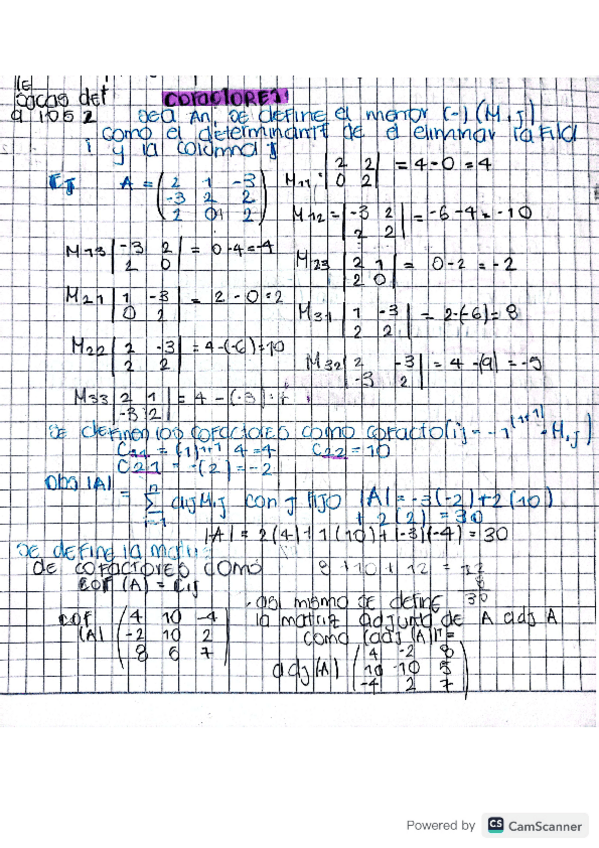 sacas det COFACTORES
a los 2 Sea An, se define el menor (-) (Mij)
como el determinante de el eliminar la fila
i y la columna j
Ej A = (2 1 -3
-3 2 2
2 0 2)
M11 |2 2
0 2| = 4-0 = 4
M12 = |-3 2
2 2| = -6-4 = -10
M13 |-3 2
2 0| = 0-4=-4
M23 |2 1
2 0| = 0-2 = -2
M21 |1 -3
0 2| = 2-0=2
M31 |1 -3
2 2| = 2-(-6)=8
M22 |2 -3
2 2| =4-(-6)=10
M32 |2 -3
-3 2| = 4-(9) = -5
M33 |2 1
-3 2| = 4-(-3)=
Se definen los cofactores como cofacto(ij = -1(1+1) · Mij)
C11 = (1)1+1 4=4 C22=10
C21 = -(2) = -2
Obs |A| = n Σ i=1 aijMij con j fijo |A| = -3(-2)+2(10)
+ 2(2) = 30
|A| = 2(4)+1(10)+(-3)(-4) = 30
Se define la
de cofactores como 8+10+12 = 22
8
30
cof (A) = Cij
. asi mismo se define
la matriz adjunta de A adj A
como (adj(A))T=
cof (A) (4 10 -4
-2 10 2
8 6 7)
adj(A) (4 -2 8
10 -10 5
-4 2 7)
Powered by CS CamScanner